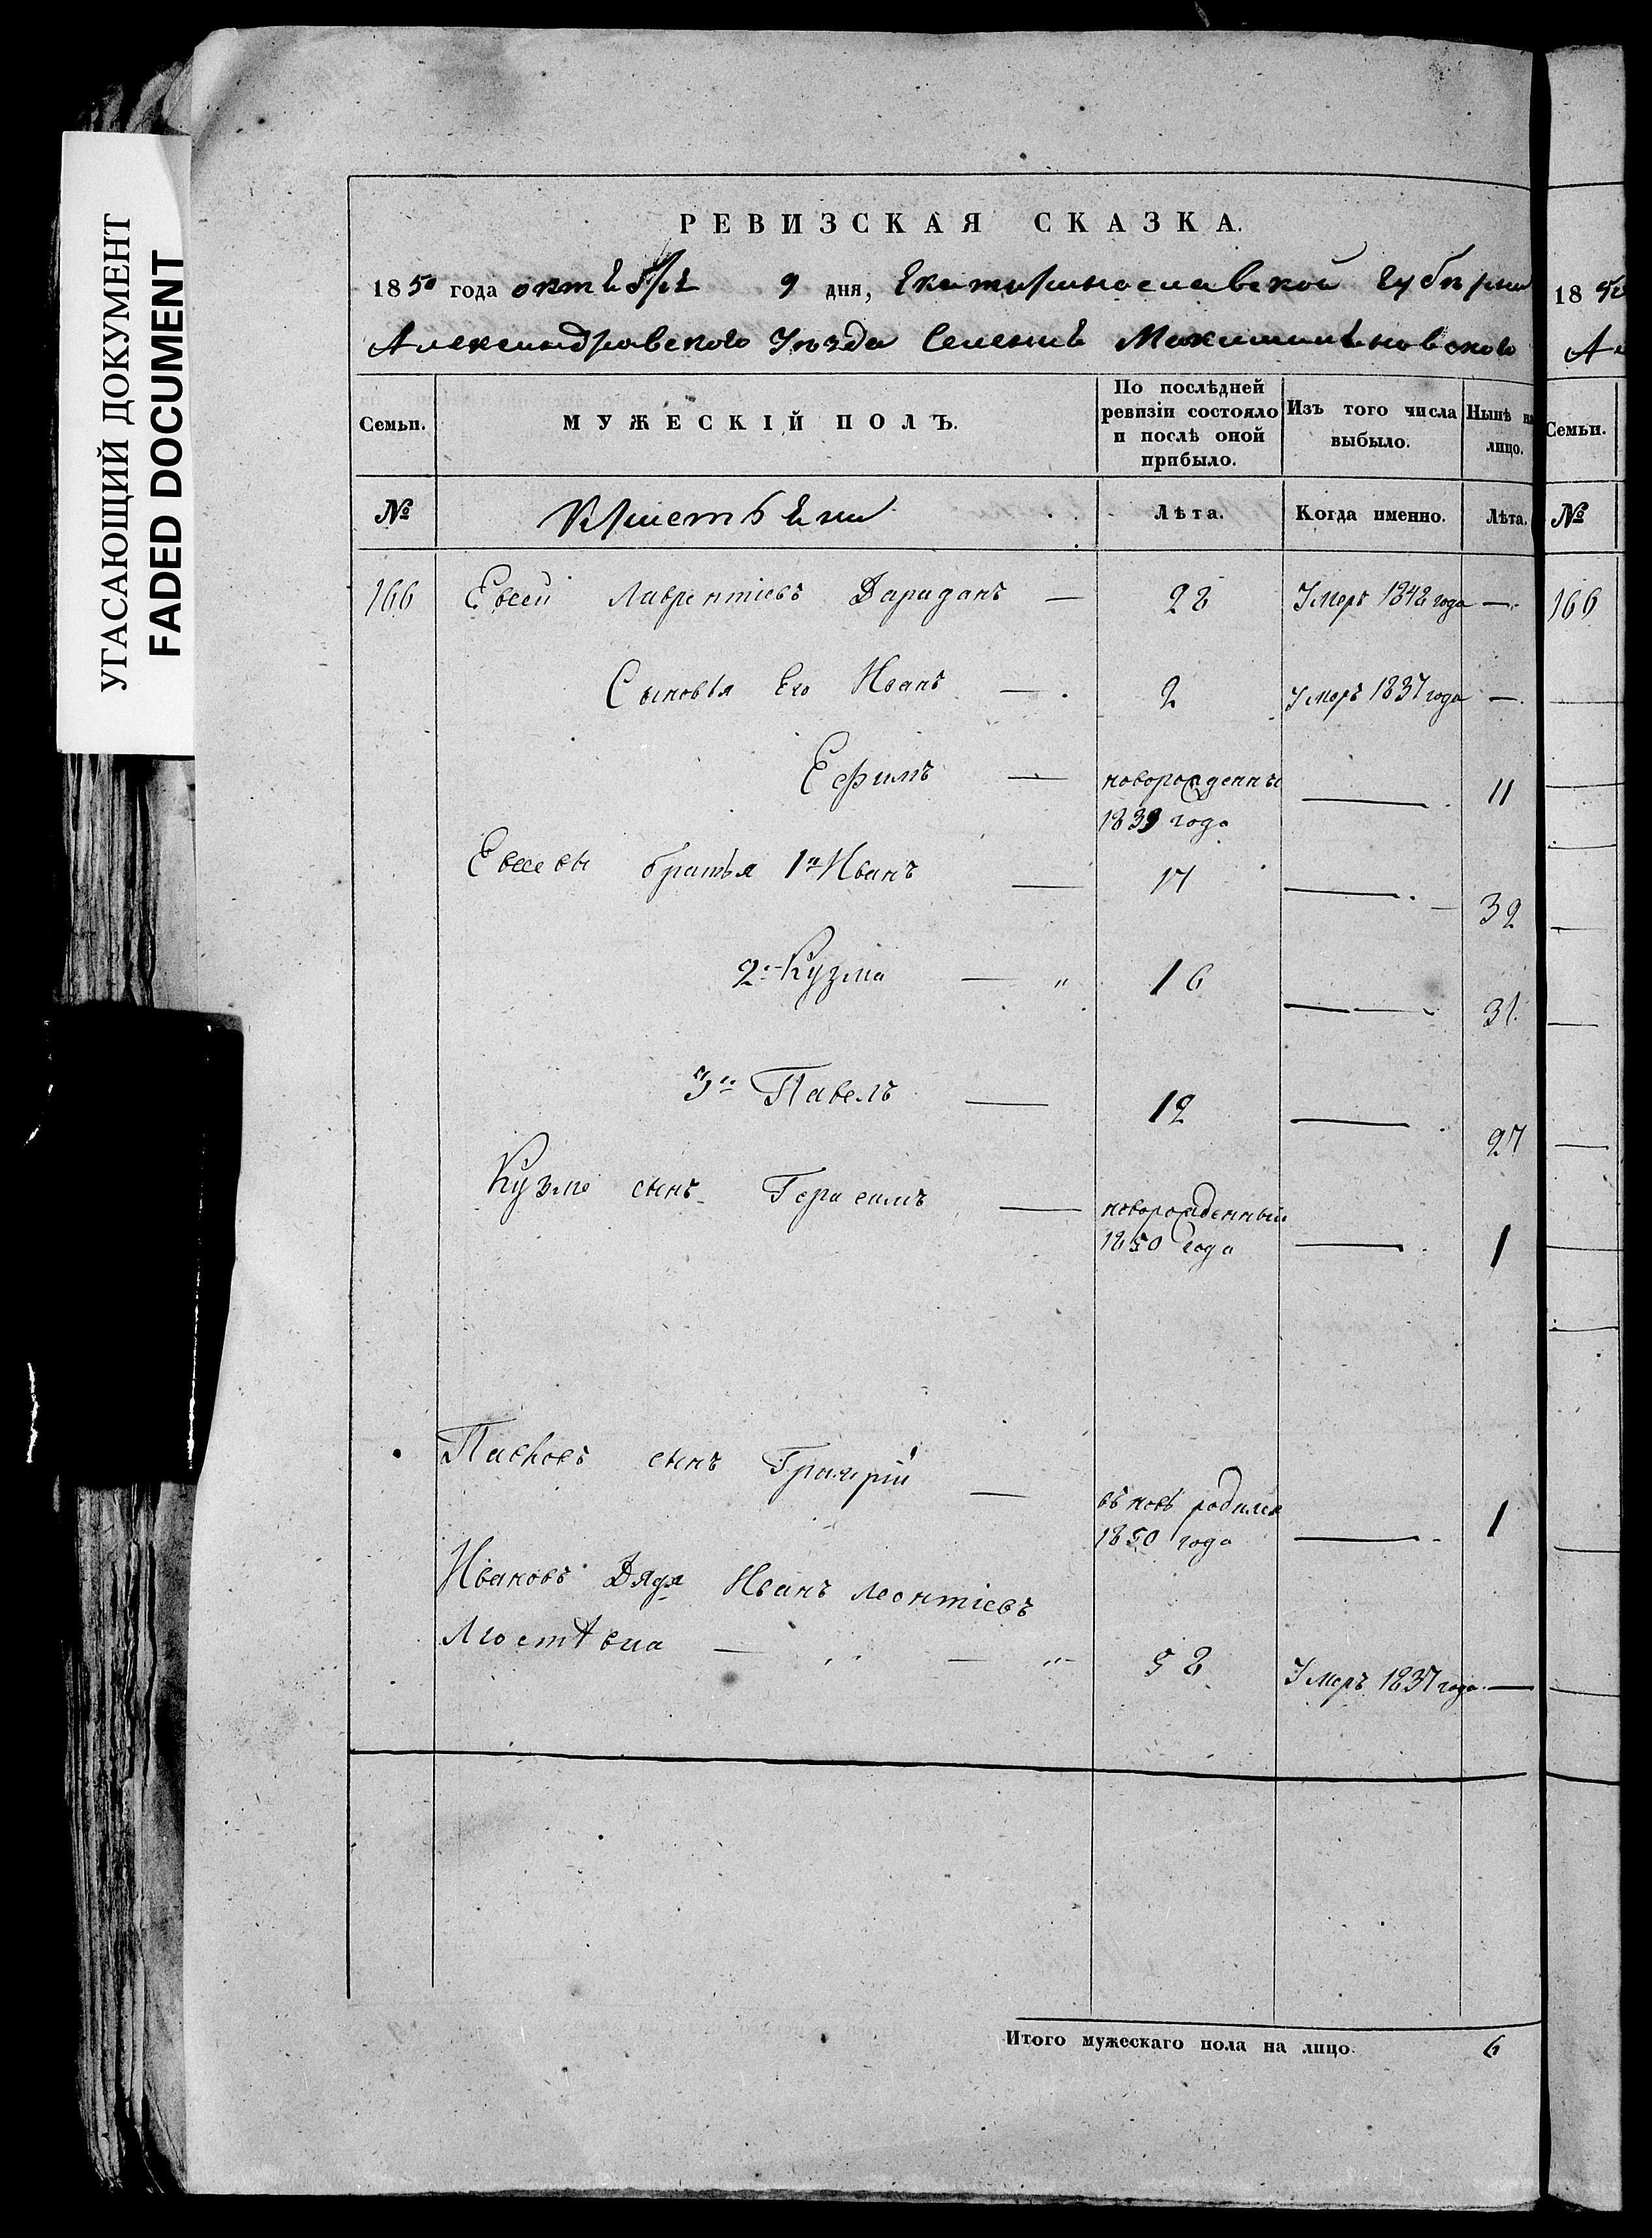 УГАСАЮЩИЙ ДОКУМЕНТ
FADED DOCUMENT
РЕВИЗСКАЯ СКАЗКА.
1850 года октября 9 дня, Екатеринославской Губернии
Александровского Уѣзда Селенія
Семьи. МУЖЕСКІЙ ПОЛЪ. По послѣдней ревизіи состояло и послѣ оной прибыло. Изъ того числа выбыло. Нынѣ на лицо.
№ Кристьяни Лѣта. Когда именно. Лѣта.
166 Евсей Лаврентіевъ Дараданъ — 28 Умеръ 1848 года —
Сыновья Его Иванъ — 2 Умеръ 1837 года —
Ефимъ — новорожденны 1839 года — 11
Евсевы братья 1й Иванъ — 17 — 32
2й Кузма — " 16 — 31
3й Павелъ — 12 — 27
Кузме сынъ Герасимъ — новорожденный 1850 года — 1
Павловъ сынъ Григорій — въновь родился 1850 года — 1
Ивановъ Дядя Иванъ Леонтіевъ
— 58 Умеръ 1837 года —
Итого мужескаго пола на лицо 6
18
Семьи.
№
166